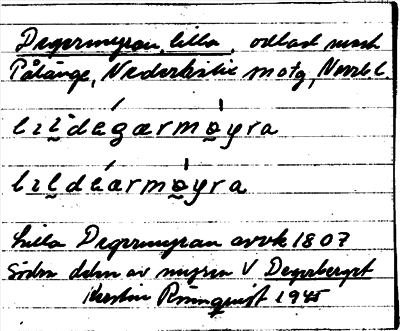 Degermyran, lilla, odlad mark
Pålänge, Nederkalix
lɪl degærmøyra
lɪl deármøyra
Lilla Degermyran avvk 1807
Södra delen av myren V Degerberget
Kerstin Rönnquist 1945